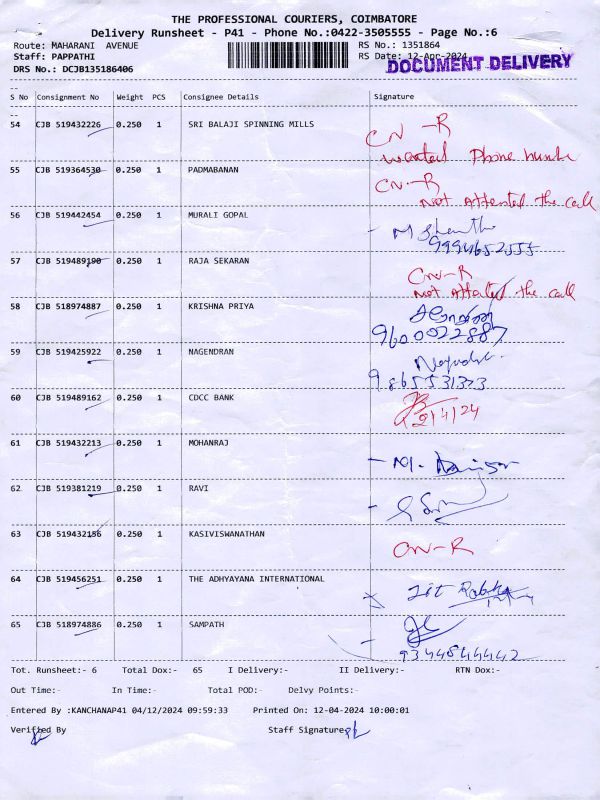 THE PROFESSIONAL COURIERS, COIMBATORE
Delivery Runsheet - P41 - Phone No.:0422-3505555 - Page No.:6
Route: MAHARANI AVENUE RS No.: 1351864
Staff: PAPPATHI RS Date: 12-Apr-2024
DRS No.: DCJB135186406 DOCUMENT DELIVERY
S No Consignment No Weight PCS Consignee Details Signature
54 CJB 519432226 0.250 1 SRI BALAJI SPINNING MILLS CN-R
wanted Phone number
55 CJB 519364530 0.250 1 PADMABANAN CN-R
Not Attented the call
56 CJB 519442454 0.250 1 MURALI GOPAL - M
9994652555
57 CJB 519489190 0.250 1 RAJA SEKARAN CN-R
Not Attated the call
58 CJB 518974887 0.250 1 KRISHNA PRIYA
9600022887
59 CJB 519425922 0.250 1 NAGENDRAN
9865531323
60 CJB 519489162 0.250 1 CDCC BANK
61 CJB 519432213 0.250 1 MOHANRAJ - M.
62 CJB 519381219 0.250 1 RAVI -
63 CJB 519432156 0.250 1 KASIVISWANATHAN CN-R
64 CJB 519456251 0.250 1 THE ADHYAYANA INTERNATIONAL
65 CJB 518974886 0.250 1 SAMPATH -
9344844442
Tot. Runsheet:- 6 Total Dox:- 65 I Delivery:- II Delivery:- RTN Dox:-
Out Time:- In Time:- Total POD:- Delvy Points:-
Entered By :KANCHANAP41 04/12/2024 09:59:33 Printed On: 12-04-2024 10:00:01
Verified By Staff Signature